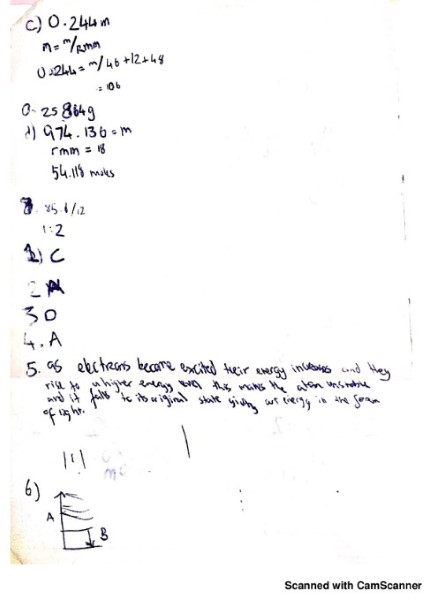 c) 0.244m
n = m/Rmm
0.244 = m/46+12+48
= 106
0. 25 864g
d) 974.136 = m
rmm = 18
54.118 moles
85.6/12
1:2
1) C
2 A
3 D
4. A
5. as electrons become excited their energy increases and they
rise to a higher energy level this makes the atom unstable
and it falls to its original state giving out energy in the form
of light.
6)
A
B
Scanned with CamScanner